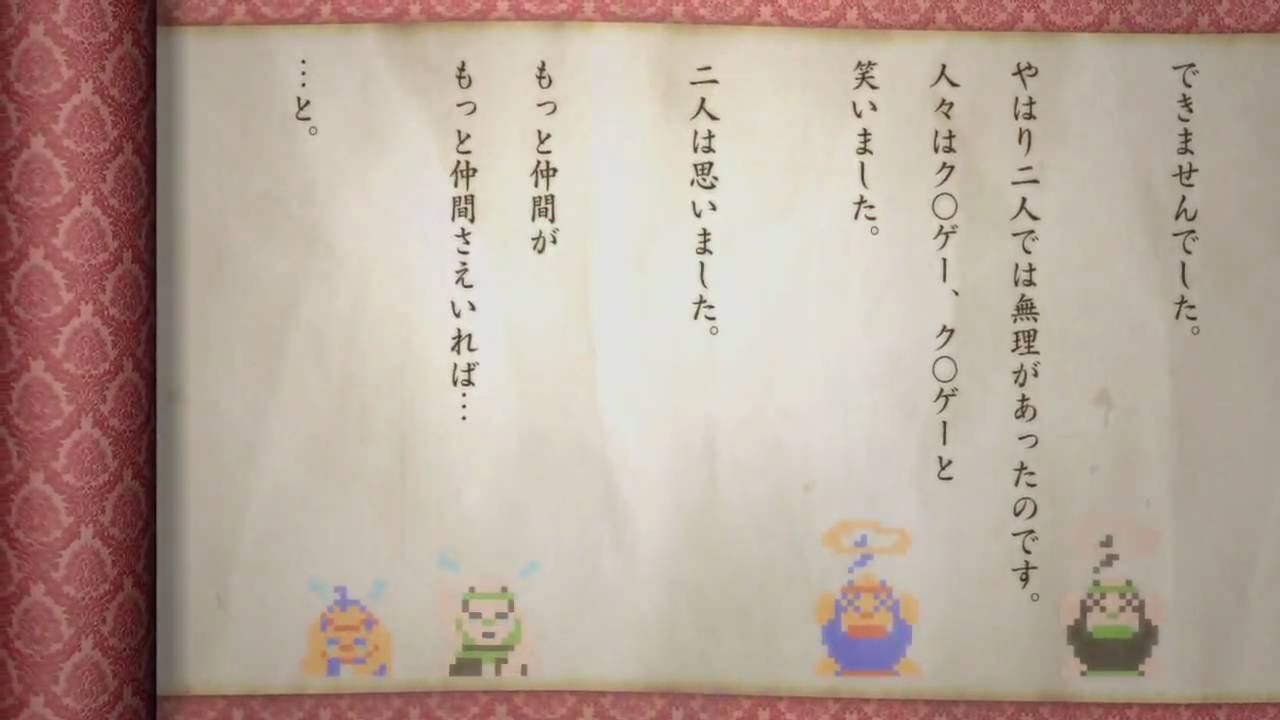 できませんでした。
やはり二人では無理があったのです。
人々はク〇ゲー、ク〇ゲーと
笑いました。
二人は思いました。
もっと仲間が
もっと仲間さえいれば…
…と。